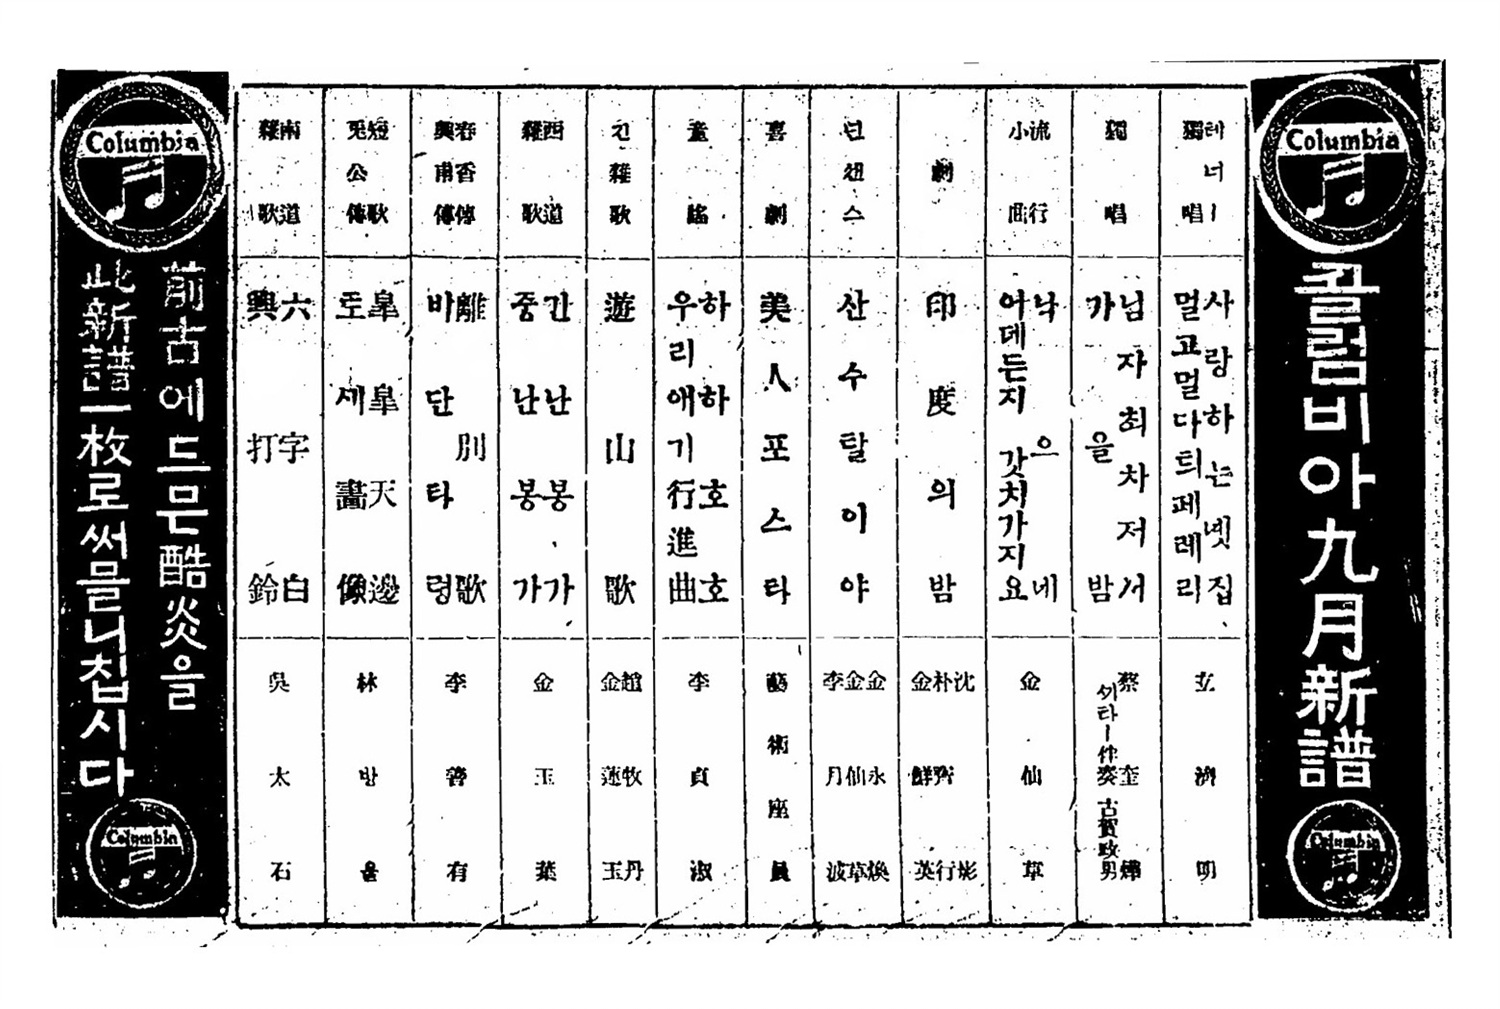 Columbia
콜럼비아九月新譜
Columbia
테너ー
獨唱
사랑하는넷집
멀고멀다틔페레리
玄濟明
獨唱
님자최차저서
가을밤
蔡奎燁
ᄭᅵ타ー伴奏古賀政男
流行
小曲
낙으네
어데든지 갓치가지요
金仙草
劇
印度의밤
沈影
朴齊行
金鮮英
넌쎈스
산수탈이야
金永煥
金仙草
李月波
喜劇
美人포스타
藝術座員
童謠
하하호호
우리애기行進曲
李貞淑
긴雜歌
遊山歌
趙牧丹
金蓮玉
西道
雜歌
간난봉가
중난봉가
金玉葉
春香傳
興甫傳
離別歌
바단타령
李善有
短歌
兎公傳
皐皐天邊
토세畵像
林방울
南道
雜歌
六字白
興打鈴
吳太石
Columbia
前古에드믄酷炎을
此新譜一枚로써믈니칩시다
Columbia